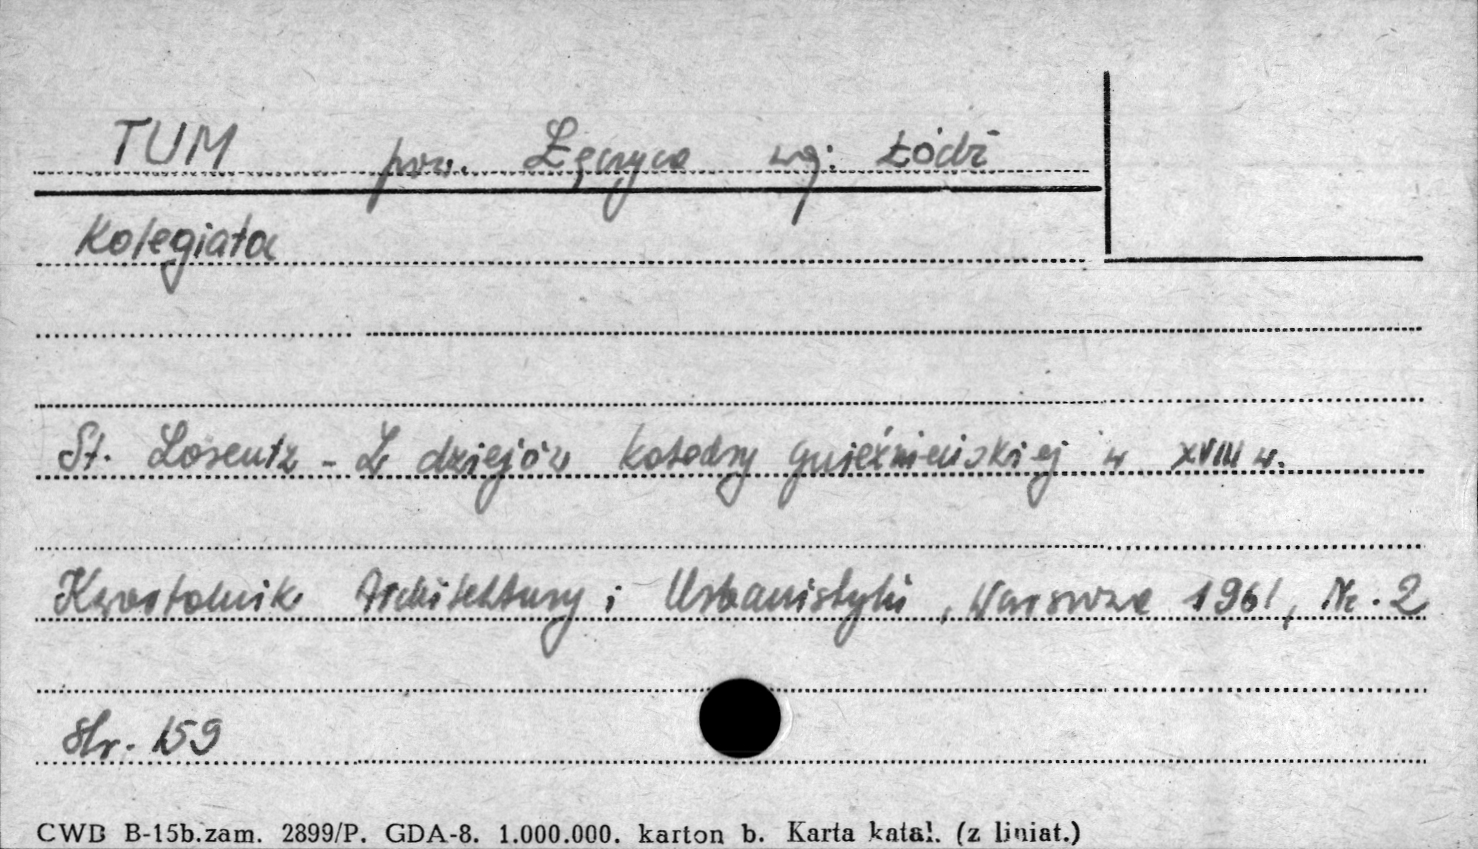 TUM pow. Łęczyca woj: Łódź
Kolegiata
St. Lorentz - Z dziejów katedry gnieźnieńskiej w XVIII w.
Kwartalnik Architektury i Urbanistyki, Warszawa 1961, Nr. 2
Str. 159
CWD B-15b.zam. 2899/P. GDA-8. 1.000.000. karton b. Karta katal. (z liniat.)